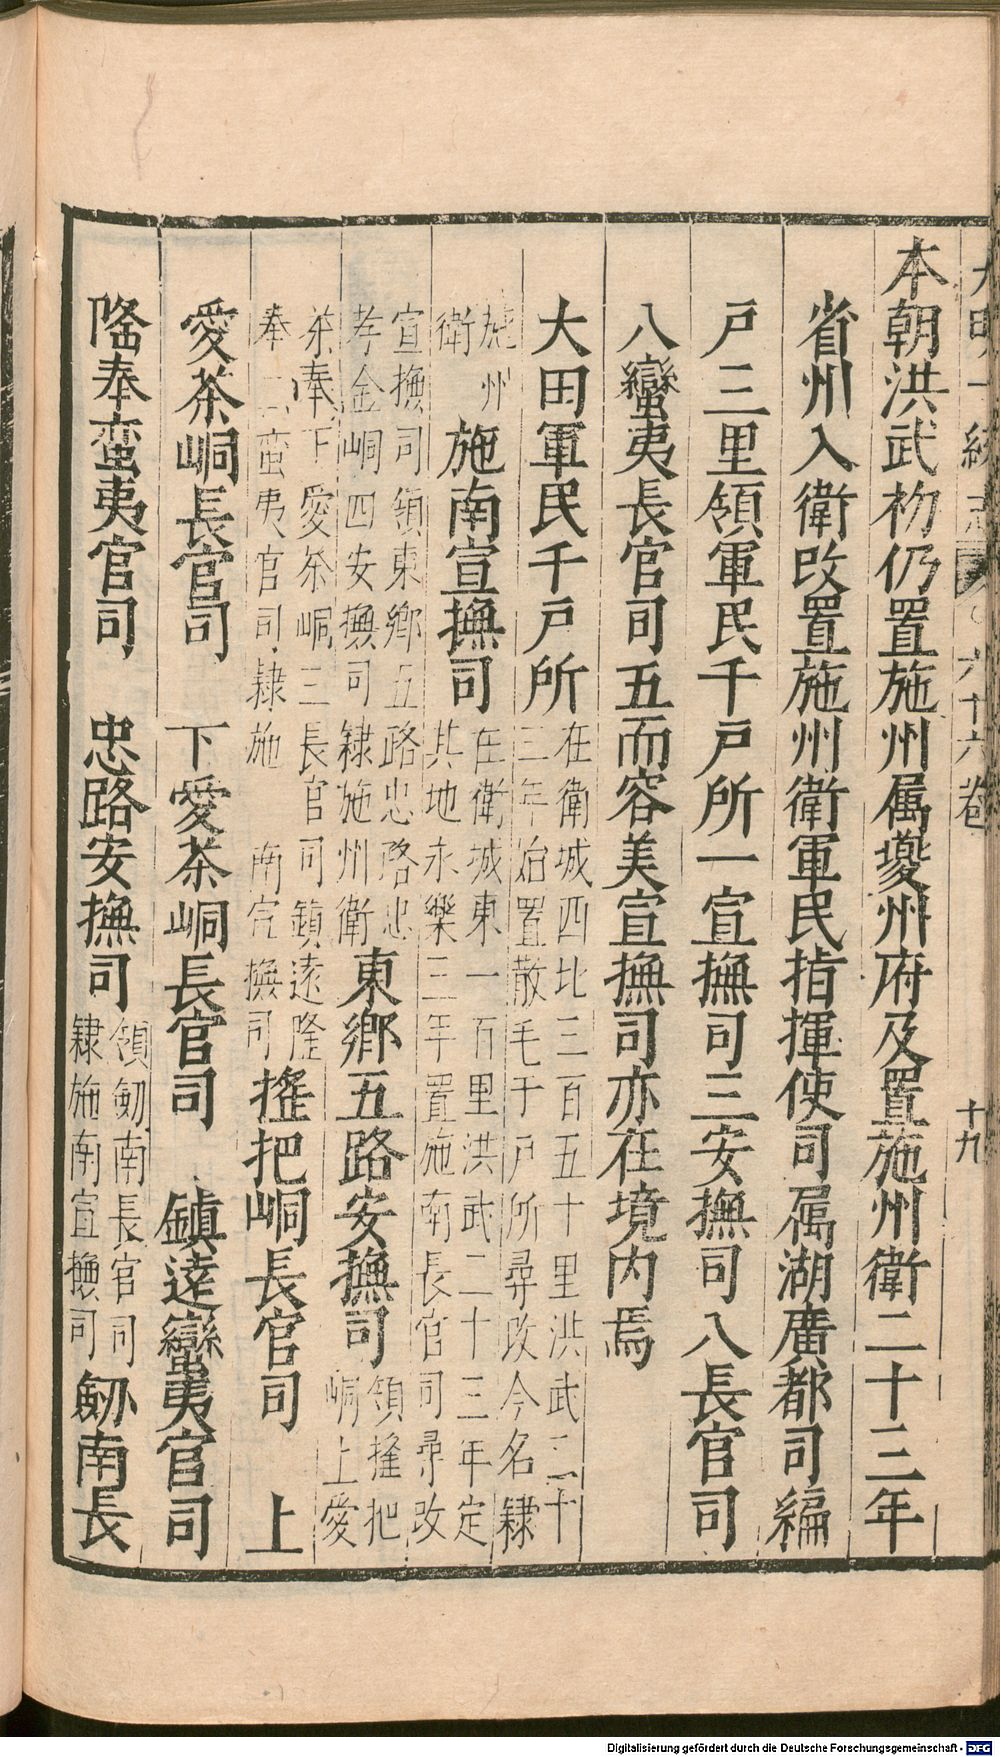 大明一統志 六十六卷 十九
本朝洪武初仍置施州属夔州府及置施州衛二十三年
省州入衛改置施州衛軍民指揮使司属湖廣都司編
戸三里領軍民千戸所一宣撫司三安撫司八長官司
八蠻夷長官司五而容美宣撫司亦在境内焉
大田軍民千戸所
在衛城西北三百五十里洪武二十
三年始置散毛千戸所尋改今名隸
施州
衛
施南宣撫司
在衛城東一百里洪武二十三年定
其地永樂三年置施南長官司尋改
宣撫司領東鄉五路忠路忠
孝金峒四安撫司隸施州衛
東鄉五路安撫司
領搖把
峒上愛
茶奉下愛茶峒三長官司鎮遠隆
奉二蛮夷官司隸施南宣撫司
搖把峒長官司 上
愛茶峒長官司 下愛茶峒長官司 鎮遠蠻夷官司
隆奉蛮夷官司 忠路安撫司
領劒南長官司
隸施南宣撫司
劒南長
Digitalisierung gefördert durch die Deutsche Forschungsgemeinschaft - DFG